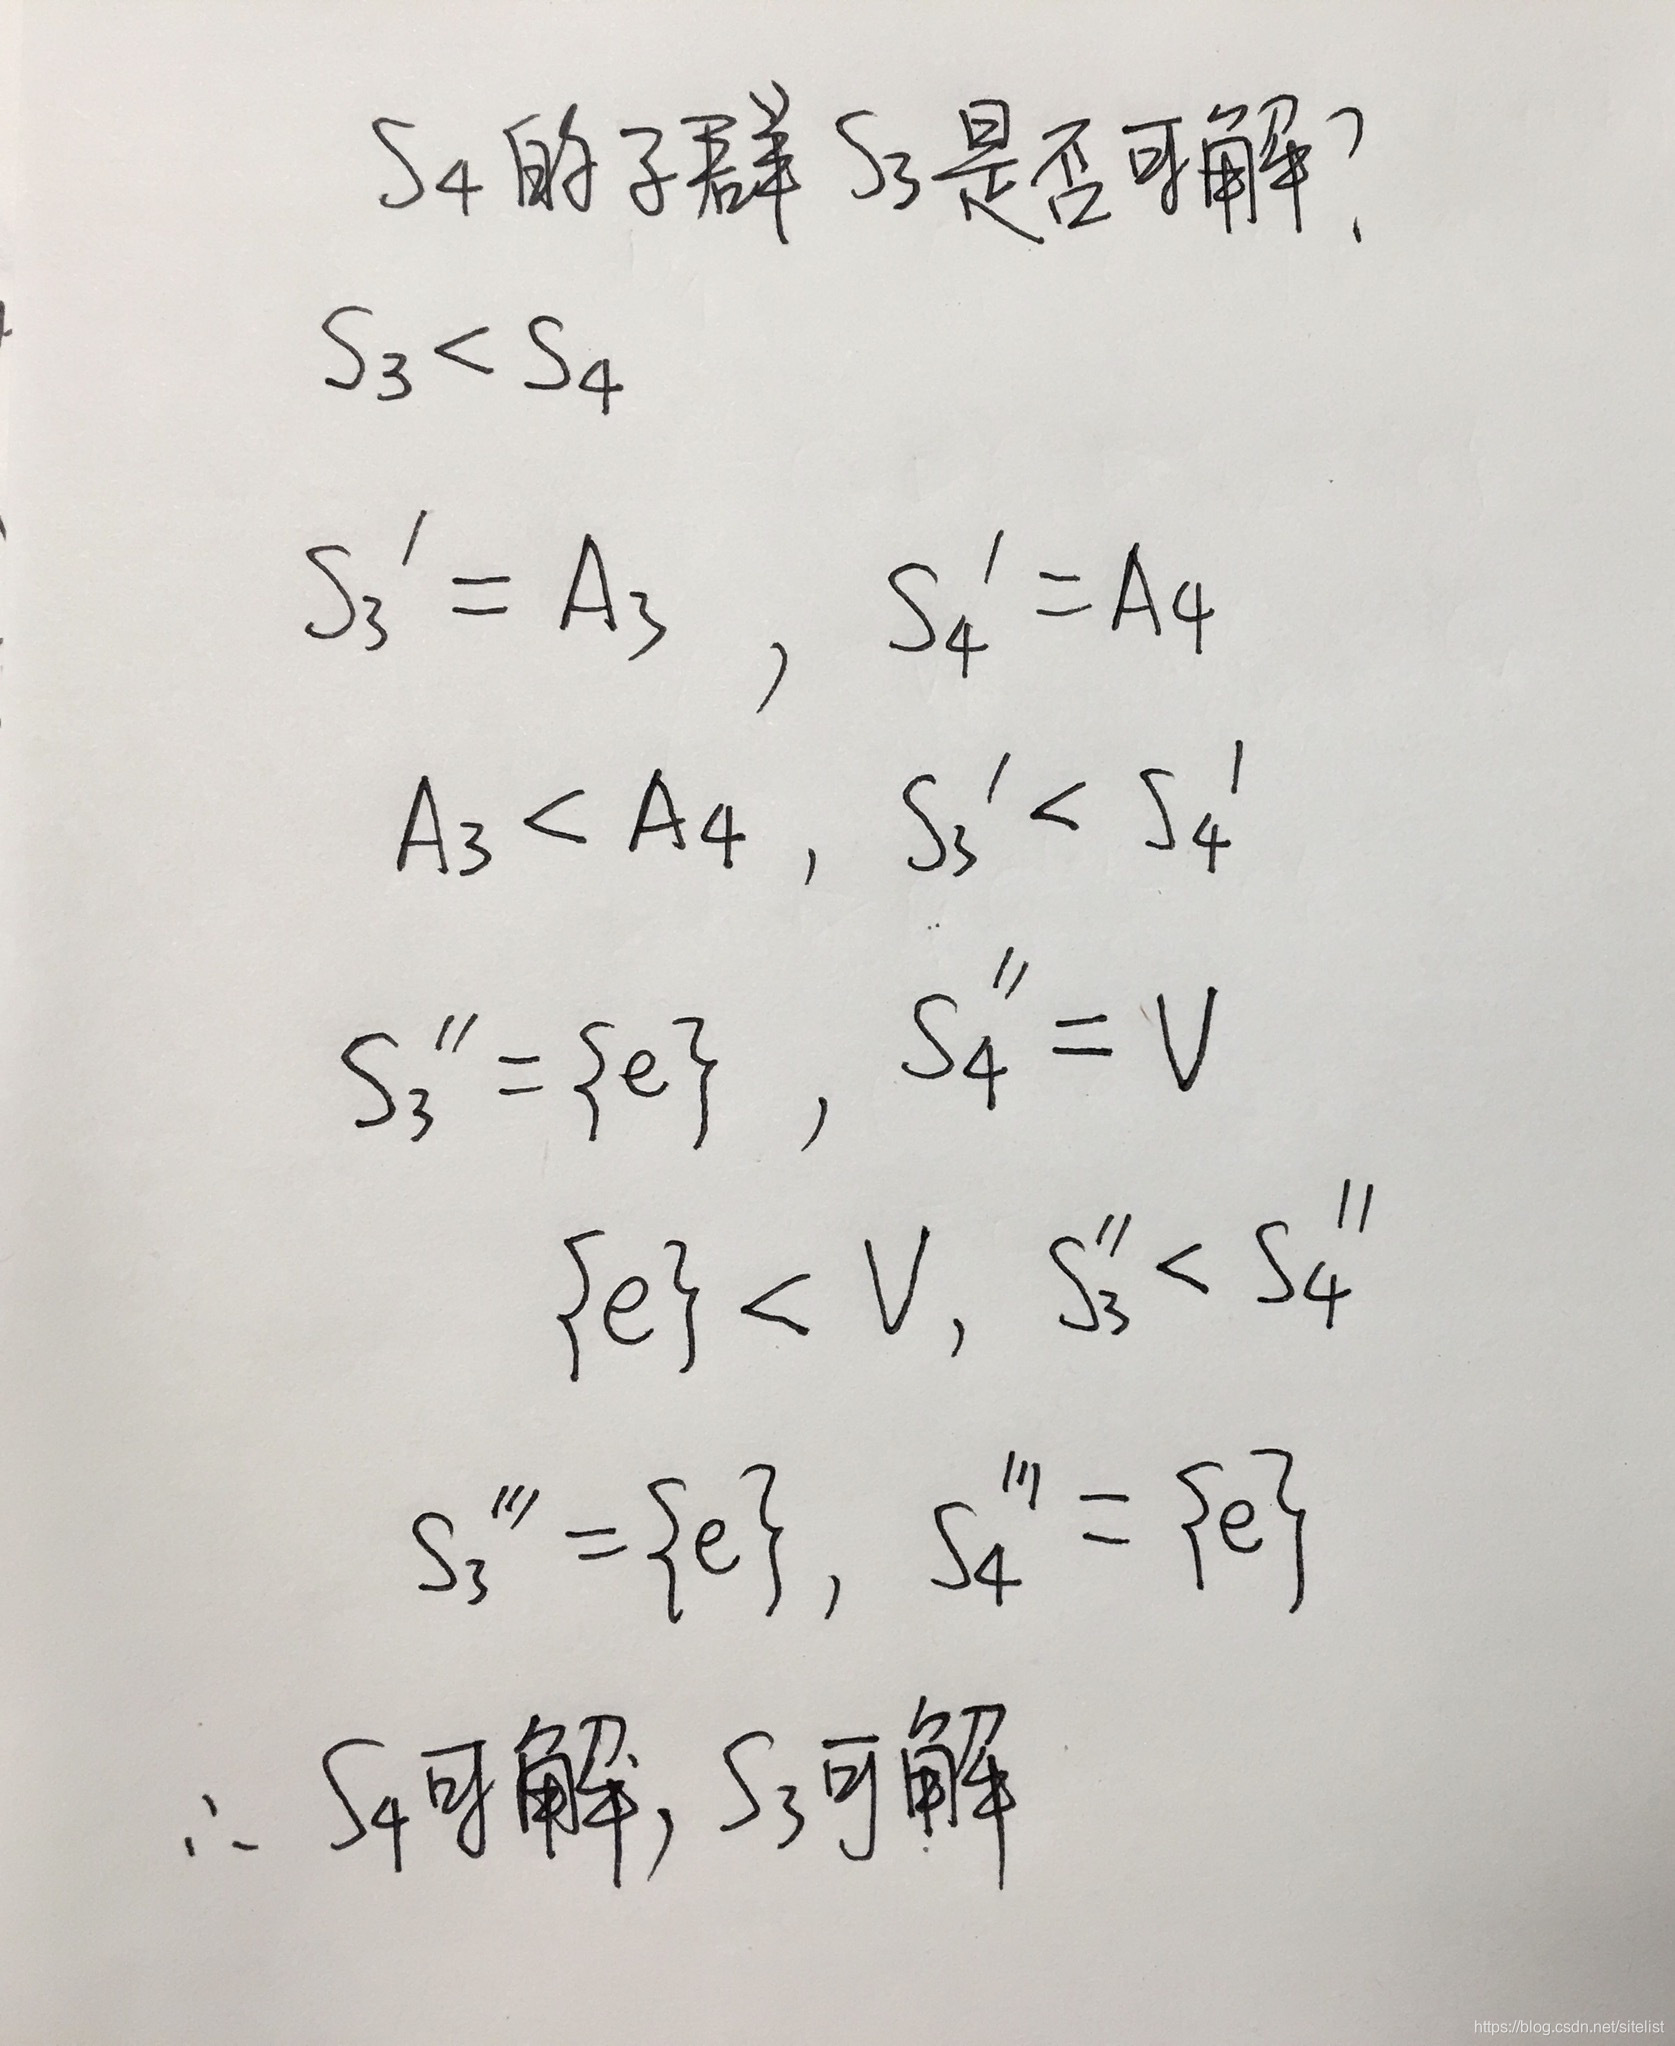 S₄的子群S₃是否可解?
S₃ < S₄
S₃' = A₃ , S₄' = A₄
A₃ < A₄ , S₃' < S₄'
S₃'' = {e} , S₄'' = V
{e} < V, S₃'' < S₄''
S₃''' = {e}, S₄''' = {e}
∴ S₄可解, S₃可解
https://blog.csdn.net/sitelist